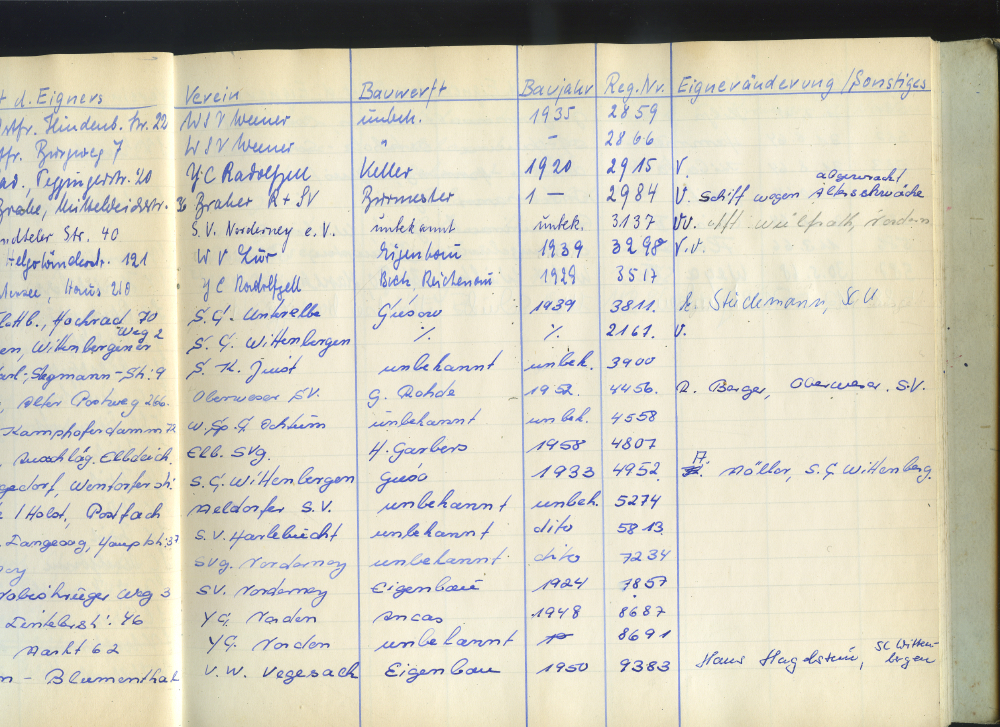 d. Eigners Verein Bauwerft Baujahr Reg.Nr. Eigneränderung/Sonstiges
Hindenb. Str. 22 WSV Wemer unbek. 1935 2859
Burgweg 7 WSV Wemer " - 2866
Str. 20 YC Radolfzell Keller 1920 2915 V.
abgewrackt
Str. 36 Braker R+SV Burmester 1 — 2984 V. Schiff wegen Altersschwäche
Str. 40 S.V. Norderney e.V. unbekannt unbek. 3137 VV.
Helgoländerstr. 121 WV Eigenbau 1939 3298 V.V.
Haus 210 YC Radolfzell Reichenau 1929 3517
Hochrad 70 S.G. Unterelbe 1939 3811. Stüdemann,
Weg 2
Wittenbergener S.G. Wittenbergen ·/. ·/. 2161. V.
Stegmann-Str. 9 S. K. Juist unbekannt unbek. 3900
Alter Postweg 266. Oberweser S.V. G. Rohde 1952. 4456. R. Berger, Oberweser. S.V.
Kamphoferdamm 72 W.Sp.G Ochtum unbekannt unbek. 4558
Elbdeich. Elb. SVg. H. Garbers 1958 4807
Wentorfer Str. S.G. Wittenbergen 1933 4952 Möller, S.G. Wittenberg.
/Holst., Postfach Meldorfer S.V. unbekannt unbek. 5274
Langeoog, Hauptstr. 37 S.V. Harlebucht unbekannt dito 5813.
SVg. Norderney unbekannt dito 7234
Weg 3 SV. Norderney Eigenbau 1924 7857
46 YG. Norden 1948 8687
Markt 62 YG. Norden unbekannt 8691
SC Witten-
- Blumenthal V.W. Vegesack Eigenbau 1950 9383 Hans bergen